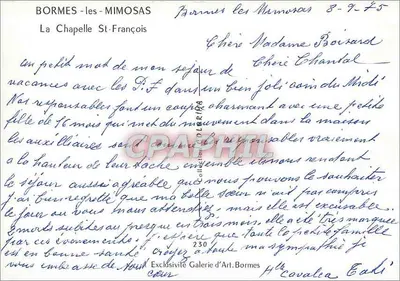 BORMES - les - MIMOSAS
La Chapelle St-François
Bormes les Mimosas 8-9-75
Chère Madame Boisard
Chère Chantal
un petit mot de mon sejour de
vacances avec les P.T dans un bien joli coin du Midi
Nos responsables font un couple charmant avec une petite
fille de 16 mois qui met du mouvement dans la maison
les auxilliaires sont responsables vraiement
a la hauteur de leur tache ensemble ils nous rendent
le sejour aussi agreable que nous pouvons le souhaiter
j'ai bien regretté que ma belle sœur n'ait pas compris
le jour ou vous nous attendiez mais elle est excusable
3 morts subites ou presque en trois mois elle a été tres marquee
par ces evenements j'espere que toute la petite famille
est en bonne santé croyez a toute ma sympathie je
vous embrasse de tout
cœur
Collection
CPAPHIL
230
Exclusivité Galerie d'Art, Bormes